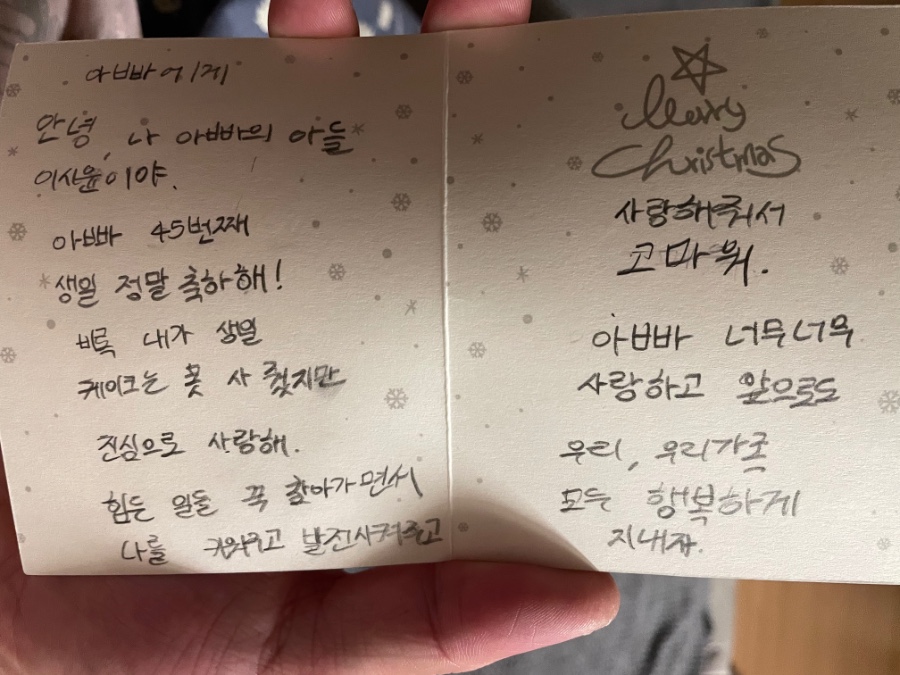 아빠에게
안녕, 나 아빠의 아들
이사윤이야.
아빠 45번째
생일 정말 축하해!
비록 내가 생일
케이크는 못 사 줬지만
진심으로 사랑해.
힘든 일들 꾹 참아가면서
나를 키워주고 발전시켜주고
Merry
Christmas
사랑해줘서
고마워.
아빠 너무너무
사랑하고 앞으로도
우리, 우리가족
모두 행복하게
지내자.